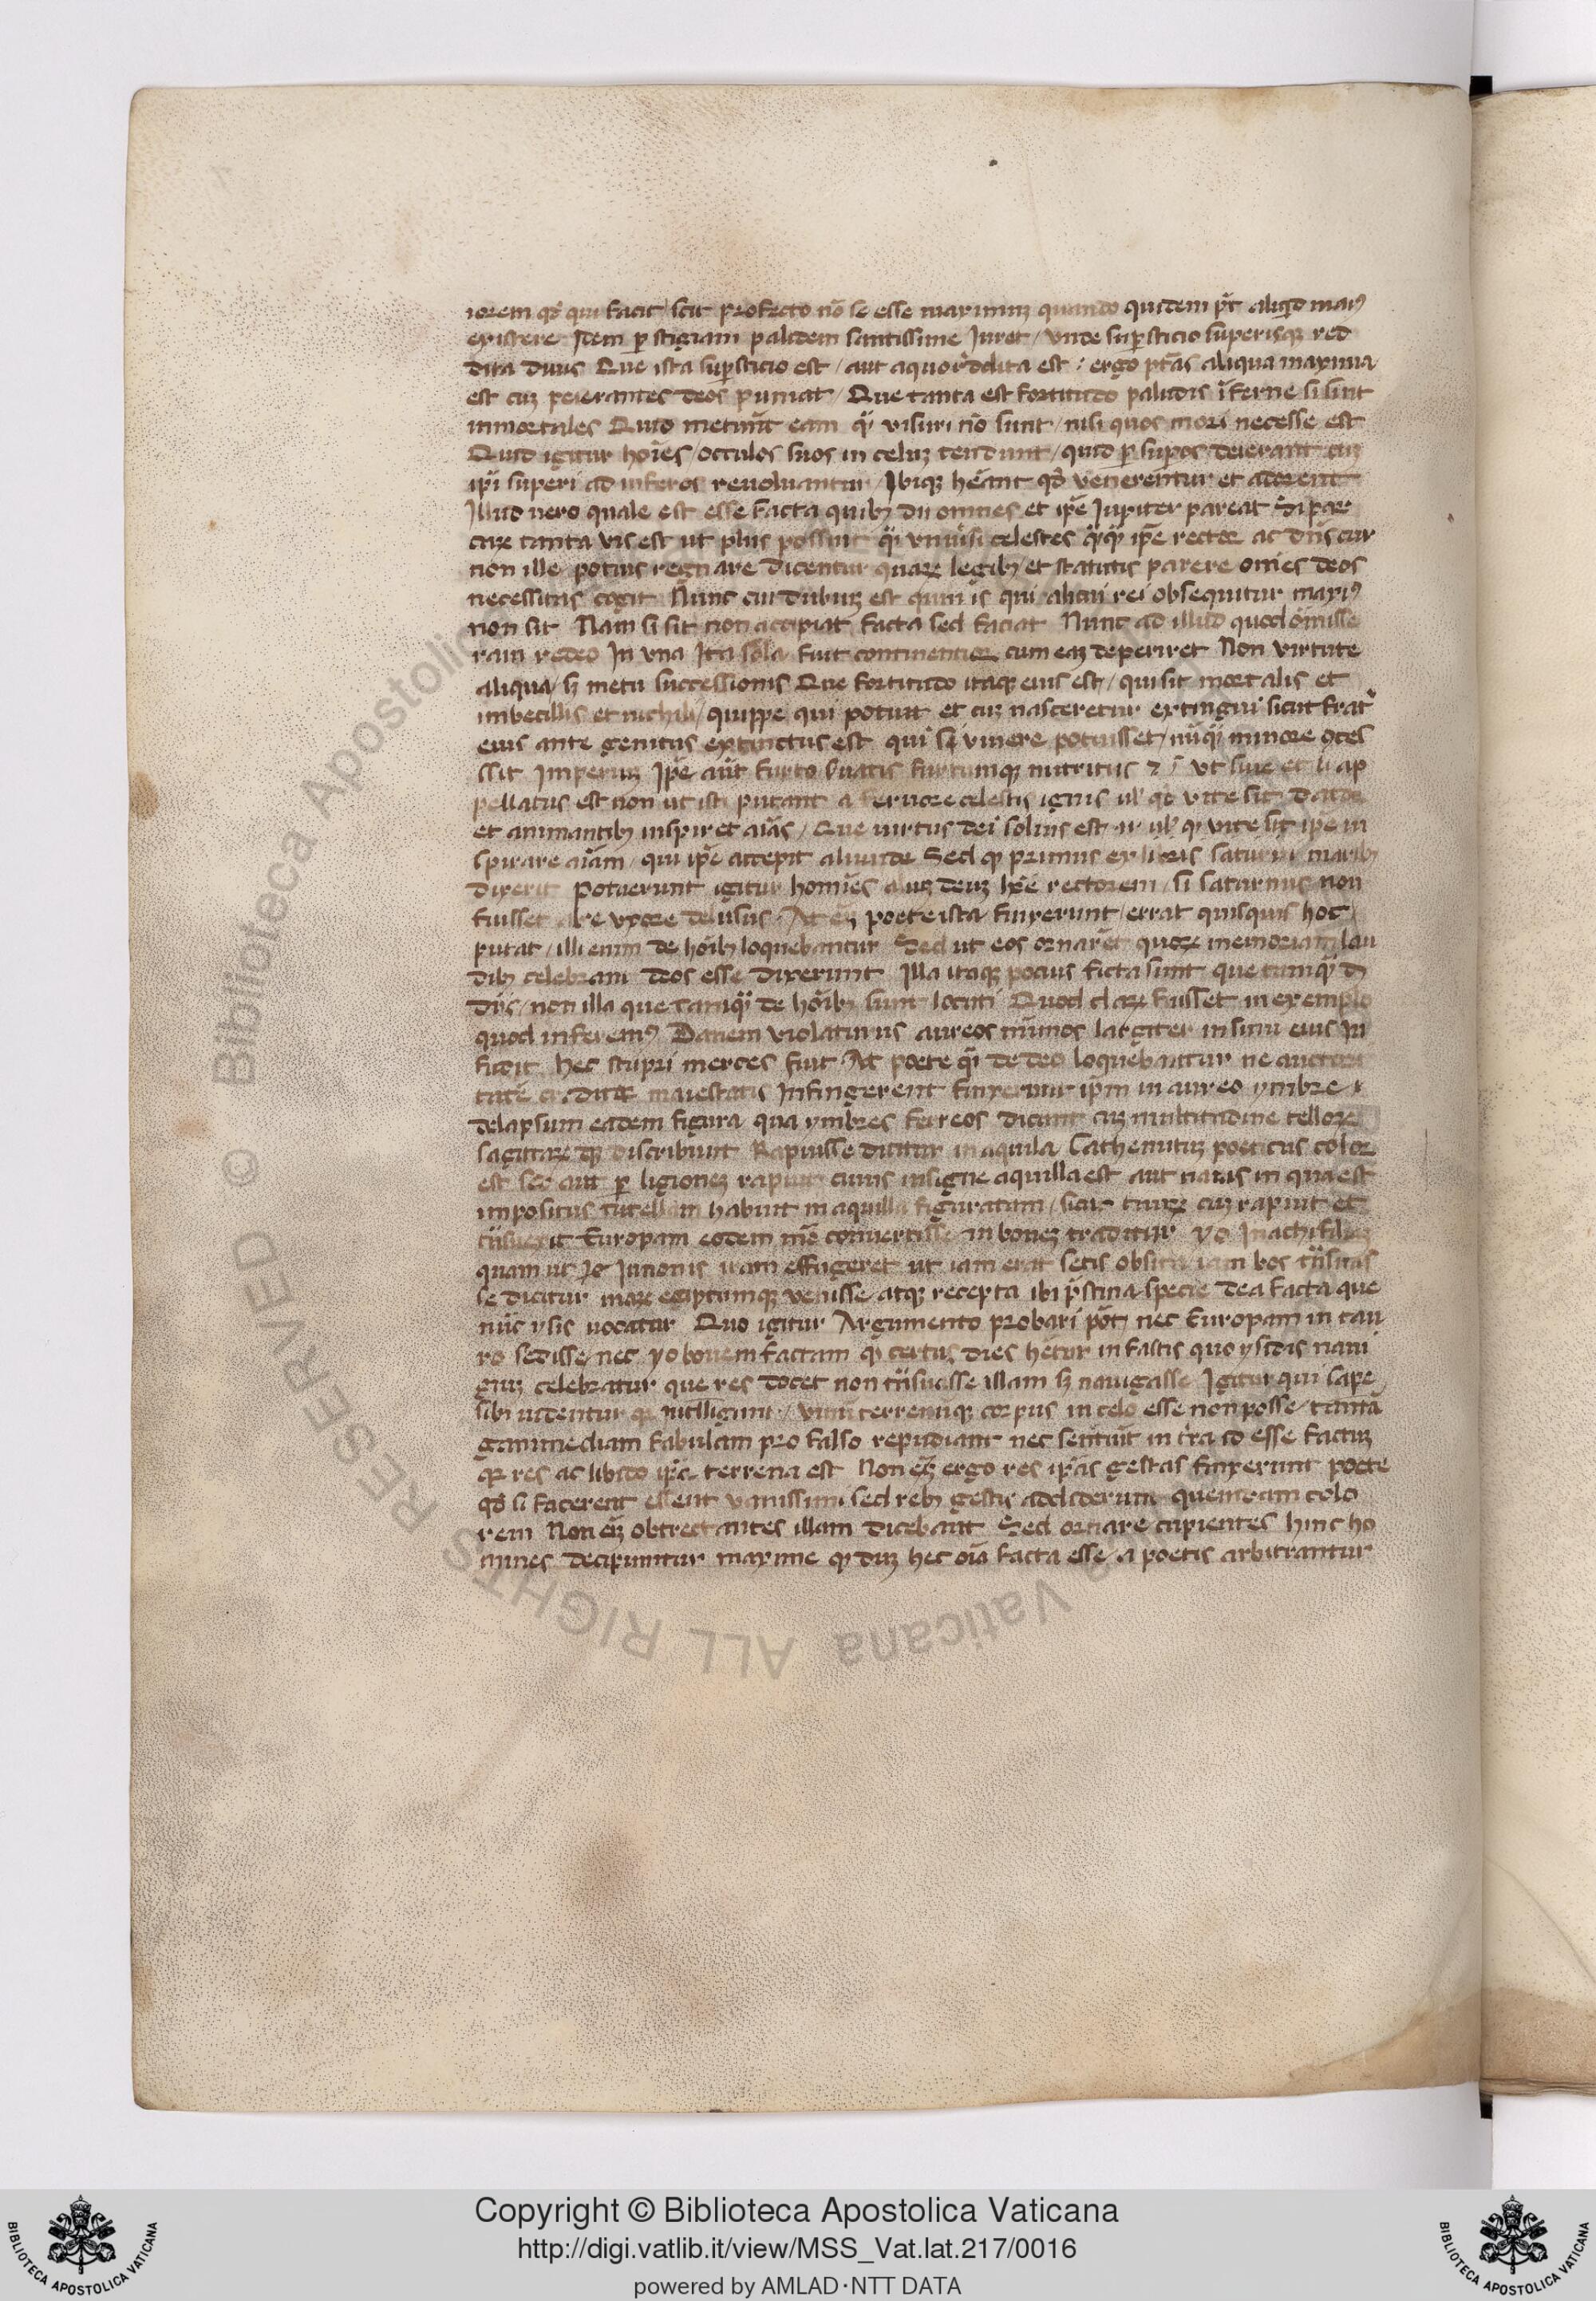 iorem qd qui facit / scit profecto nō se esse maximuz quando quidem pt̄ aliqid mai9
existere Idem p stigiam paludem santissime Iuret / vnde supsticio superisqz red
dita diuis Que ista supsticio est / aut aquo reddita est : ergo ptās aliqua maxima
est cuz peierantes deos puniat / Que tanta est fortitudo paludis īferne si sint
inmortales Quid metuūt eam qi visuri nō sunt / nisi quos mori necesse est
Quid igitur hoīes / occulos suos in celuz tendunt / quid p supos deierant cuz
ipi superi ad inferos reuoluantur / Ibiqz heant qd venerentur et adorent
Illud vero quale est esse facta quibz dii omnes et ipe Iupiter pareat Si par
caꝝ tanta vis est ut plus possint qi vniusi celestes qiqi ipe rector ac dns cur
non ille potius regnare dicentur quaꝝ legibz et statutis parere omēs deos
necessitas cogit Nunc cui dubuz est quin is qui alicui rei obsequitur maxi9
non sit Nam si sit non accipiat facta sed faciat Nunc ad illud quod omisse
ram redeo In vna Ita sola fuit continentior cum eaz deperiret Non virtute
aliqua / sz metu successionis Que fortitudo itaqz eius est / qui sit mortalis et
imbecillis et nichili / quippe qui potuit et cuz nasceretur extingui sicut frat
eius ante genitus extinctus est qui si viuere potuisset / nūqi minore 9ces
ssit Imperiuz Ipe aut furto suatis furtimqz nutritus Vt siue et si ap
pellatus est non ut isti putant a feruore celestis ignis ul qd vite sit dator
et animantibz inspiret aīas / Que uirtus dei solius est ul qi vite sit ipe in
spirare aīam / qui ipe accepit aliunde Sed qi primus ex libris saturni maribz
dixerit Potuerunt igitur homīes aliuz deuz hr̄e rectorem / si saturnus non
fuisset abre vxore delusus At eni poete ista finxerunt / errat quisquis hoc
putat / illi enim de hoībz loquebantur Sed ut eos ornaret quoꝝ memoriam lau
dibz celebram deos esse dixerunt Illa itaqz pocius ficta sunt que tamqi d
diis / non illa que tamqi de hoībz sunt locuti Quod claꝝ fuisset in exemplo
quod inferem9 Danem violaturus aureos nūmos largiter in sinu eius In
fudit hec stupri merces fuit At poete qi de deo loquebantur ne auctori
tatē credite maiestatis Infingerent finxerunt ipm in aureo ymbre
delapsum eadem figura qua ymbres ferreos dicunt cuz multitudine telloꝝ
sagittaꝝqz discribunt Rapuisse dicitur in aquila Cathemituz poeticus color
est sed aut p ligionez rapuit cuius insigne aquilla est aut nauis in qua est
impositus tutellam habuit in aquilla figuratam / sicut tauꝝ cuz rapuit et
tnsuexit Europam eodem mō conuertisse in bouez traditur Yo Inachi filiaz
quam ut Io Iunonis iram effugeret ut iam erat setis obsita iam bos tnsnas
se dicitur maꝝ egiptumqz venisse atqz recepta ibi pstina specie dea facta que
nuc ysis uocatur Quo igitur Argumento probari pot nec Europam in tau
ro sedisse / nec yo bouem factam qi certus dies hetur in fastis quo ysidis naui
giuz celebratur que res docet non tnsnasse illam sz nauigasse Igitur qui sape
sibi uidentur qz intelligunt / viuū terrenūqz corpus in celo esse non posse / tantā
ganimediam fabulam pro falso repudiant nec sentiūt in tra id esse factuz
qz res ac libido ipa terrena est Non eni ergo res ipas gestas finxerunt poete
qd si facerent essent vanissimi sed rebz gestis addiderunt quemdam colo
rem Non eni obtrectantes illam dicebant Sed ornare cupientes hinc ho
mines decipiuntur maxime qi duz hec oīa facta esse a poetis arbitrantur
Copyright © Biblioteca Apostolica Vaticana
http://digi.vatlib.it/view/MSS_Vat.lat.217/0016
powered by AMLAD·NTT DATA
BIBLIOTECA APOSTOLICA VATICANA
BIBLIOTECA APOSTOLICA VATICANA
© Biblioteca Apostolica Vaticana ALL RIGHTS RESERVED